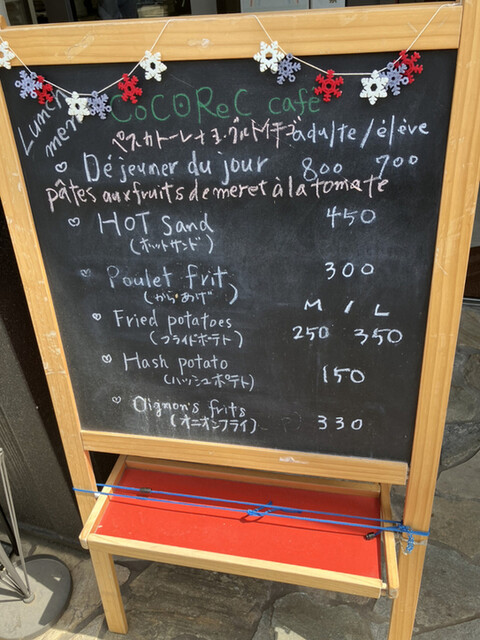 Lunch menu
CoCOReC cafe
ペスカトーレ+ヨーグルトイチゴ adulte/élève
Déjeuner du jour 800 700
pâtes aux fruits de mer et à la tomate
HOT Sand 450
(ホットサンド)
Poulet frit 300
(からあげ)
M / L
Fried potatoes 250 350
(フライドポテト)
Hash potato 150
(ハッシュポテト)
Oignon's frits 330
(オニオンフライ)